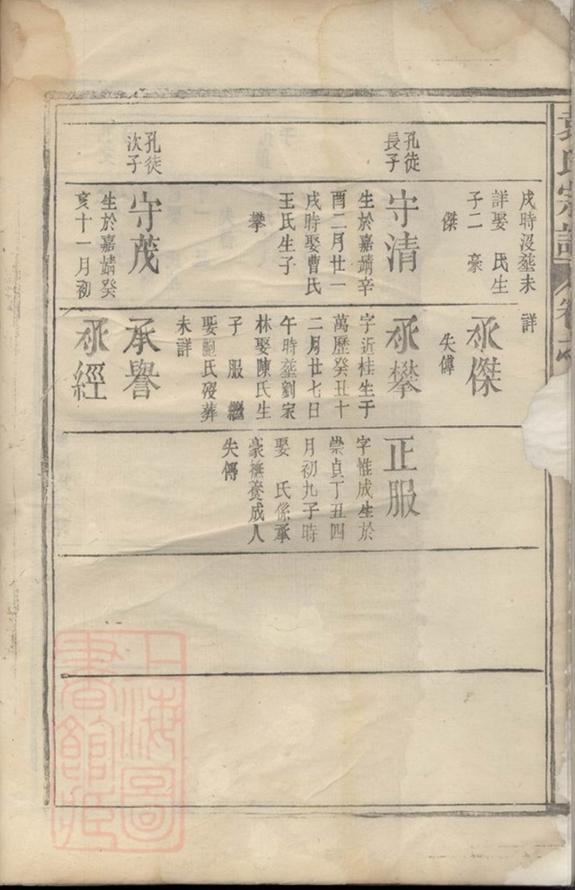 袁氏宗譜
卷之
戌時沒塟未詳
詳娶 氏生
子二 豪
傑
孔徒
長子
守清
生於嘉靖辛
酉二月廿一
戌時娶曹氏
王氏生子
攀
孔徒
次子
守茂
生於嘉靖癸
亥十一月初
承傑
失傳
承攀
字近桂生于
萬歷癸丑十
二月廿七日
午時塟劉家
林娶陳氏生
子 服 繼
娶鮑氏殁葬
未詳
承譽
承經
正服
字惟成生於
崇貞丁丑四
月初九子時
娶 氏係承
豪撫養成人
失傳
上海圖
書館